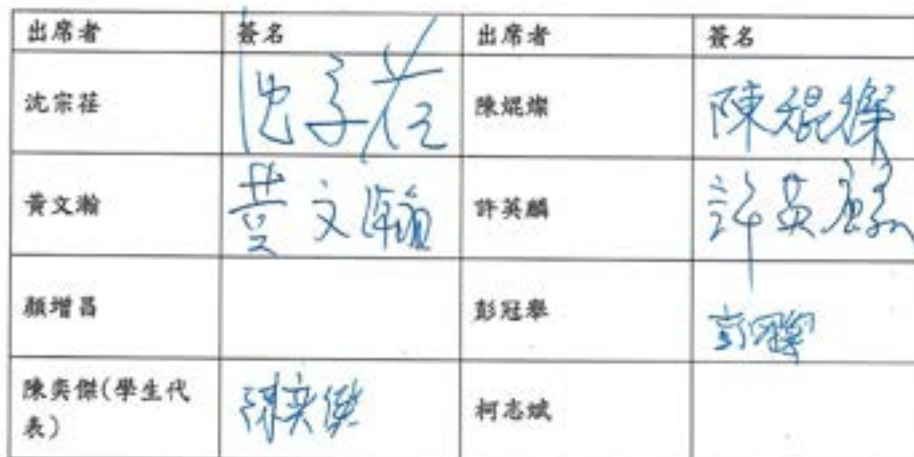 出席者 簽名 出席者 簽名
沈宗荏 沈宗荏 陳焜燦 陳焜燦
黃文瀚 黃文瀚 許英麟 許英麟
顏增昌 彭冠舉 彭冠舉
陳奕傑(學生代
表) 陳奕傑 柯志斌